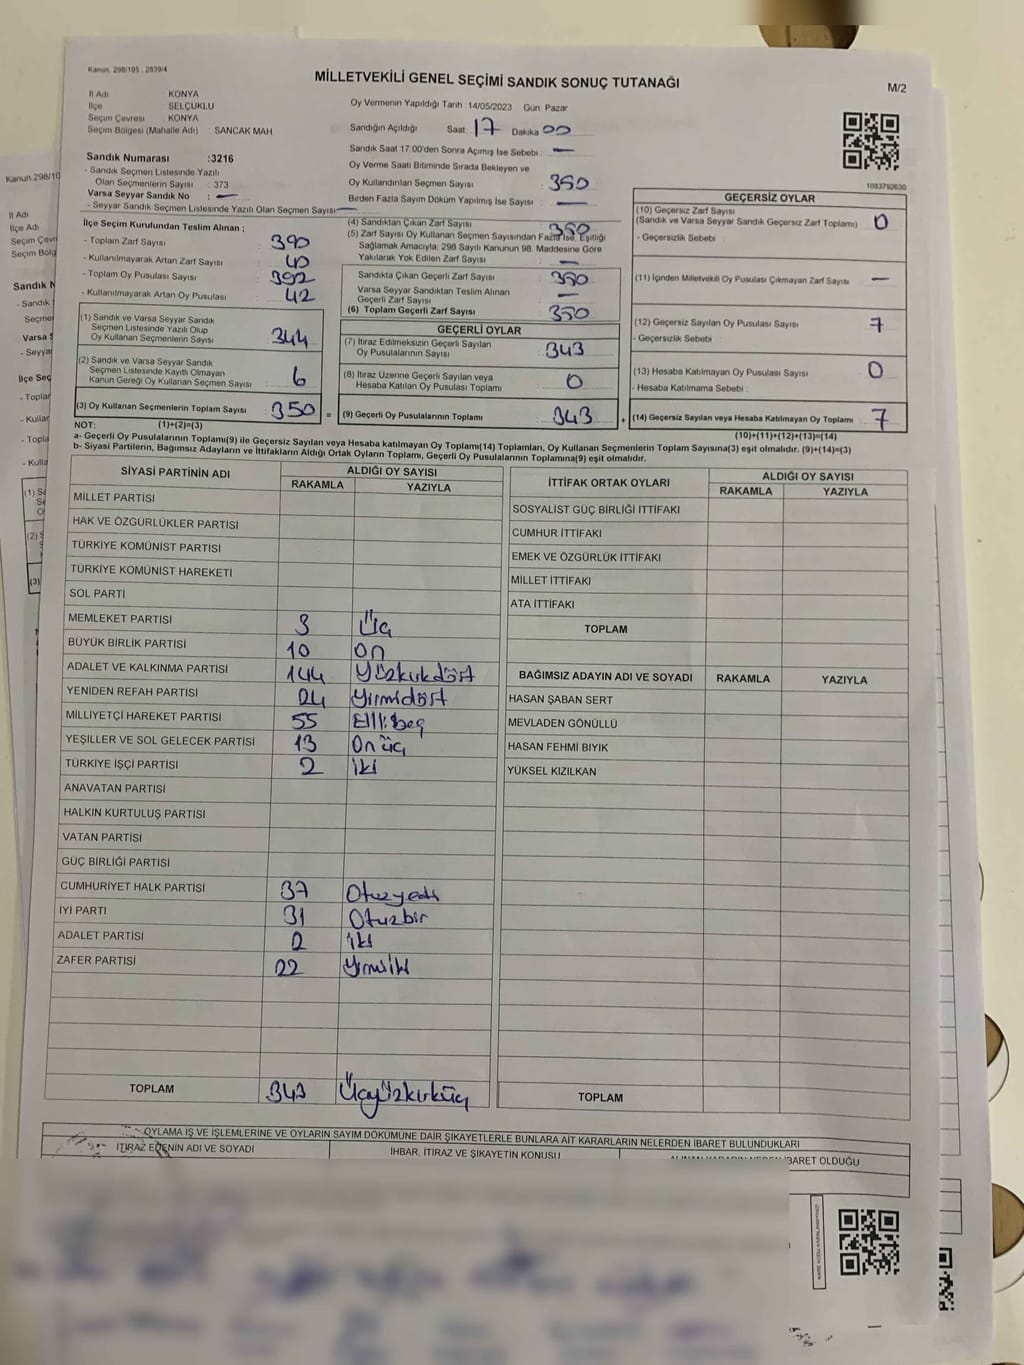 Kanun. 298/105 , 2839/4
MİLLETVEKİLİ GENEL SEÇİMİ SANDIK SONUÇ TUTANAĞI
M/2
İl Adı KONYA
İlçe SELÇUKLU
Seçim Çevresi KONYA
Seçim Bölgesi (Mahalle Adı) : SANCAK MAH
Oy Vermenin Yapıldığı Tarih :14/05/2023 Gün: Pazar
Sandığın Açıldığı Saat: 17 Dakika: 00
Sandık Saat 17:00'den Sonra Açımış İse Sebebi : —
Oy Verme Saati Bitiminde Sırada Bekleyen ve
Oy Kullandırılan Seçmen Sayısı : 350
Birden Fazla Sayım Döküm Yapılmış İse Sayısı : —
Sandık Numarası :3216
- Sandık Seçmen Listesinde Yazılı
Olan Seçmenlerin Sayısı : 373
Varsa Seyyar Sandık No : —
- Seyyar Sandık Seçmen Listesinde Yazılı Olan Seçmen Sayısı: —
1083792630
İlçe Seçim Kurulundan Teslim Alınan ;
- Toplam Zarf Sayısı : 390
- Kullanılmayarak Artan Zarf Sayısı : 40
- Toplam Oy Pusulası Sayısı : 392
- Kullanılmayarak Artan Oy Pusulası : 42
(1) Sandık ve Varsa Seyyar Sandık
Seçmen Listesinde Yazılı Olup
Oy Kullanan Seçmenlerin Sayısı : 344
(2) Sandık ve Varsa Seyyar Sandık
Seçmen Listesinde Kayıtlı Olmayan
Kanun Gereği Oy Kullanan Seçmen Sayısı : 6
(3) Oy Kullanan Seçmenlerin Toplam Sayısı : 350
(4) Sandıktan Çıkan Zarf Sayısı : 350
(5) Zarf Sayısı Oy Kullanan Seçmen Sayısından Fazla İse, Eşitliği
Sağlamak Amacıyla, 298 Sayılı Kanunun 98. Maddesine Göre
Yakılarak Yok Edilen Zarf Sayısı : —
Sandıkta Çıkan Geçerli Zarf Sayısı : 350
Varsa Seyyar Sandıktan Teslim Alınan
Geçerli Zarf Sayısı : —
(6) Toplam Geçerli Zarf Sayısı : 350
GEÇERLİ OYLAR
(7) İtiraz Edilmeksizin Geçerli Sayılan
Oy Pusulalarının Sayısı : 343
(8) İtiraz Üzerine Geçerli Sayılan veya
Hesaba Katılan Oy Pusulası Toplamı : 0
= (9) Geçerli Oy Pusulalarının Toplamı : 343
GEÇERSİZ OYLAR
(10) Geçersiz Zarf Sayısı
(Sandık ve Varsa Seyyar Sandık Geçersiz Zarf Toplamı) : 0
- Geçersizlik Sebebi :
(11) İçinden Milletvekili Oy Pusulası Çıkmayan Zarf Sayısı : —
(12) Geçersiz Sayılan Oy Pusulası Sayısı : 7
- Geçersizlik Sebebi :
(13) Hesaba Katılmayan Oy Pusulası Sayısı : 0
- Hesaba Katılmama Sebebi :
+ (14) Geçersiz Sayılan veya Hesaba Katılmayan Oy Toplamı : 7
NOT: (1)+(2)=(3)
(10)+(11)+(12)+(13)=(14)
a- Geçerli Oy Pusulalarının Toplamı(9) ile Geçersiz Sayılan veya Hesaba katılmayan Oy Toplamı(14) Toplamları, Oy Kullanan Seçmenlerin Toplam Sayısına(3) eşit olmalıdır. (9)+(14)=(3)
b- Siyasi Partilerin, Bağımsız Adayların ve İttifakların Aldığı Ortak Oyların Toplamı, Geçerli Oy Pusulalarının Toplamına(9) eşit olmalıdır.
SİYASİ PARTİNİN ADI ALDIĞI OY SAYISI
RAKAMLA YAZIYLA
MİLLET PARTİSİ
HAK VE ÖZGÜRLÜKLER PARTİSİ
TÜRKİYE KOMÜNİST PARTİSİ
TÜRKİYE KOMÜNİST HAREKETİ
SOL PARTİ
MEMLEKET PARTİSİ 3 Üç
BÜYÜK BİRLİK PARTİSİ 10 On
ADALET VE KALKINMA PARTİSİ 144 Yüzkırkdört
YENİDEN REFAH PARTİSİ 24 Yirmidört
MİLLİYETÇİ HAREKET PARTİSİ 55 Ellibeş
YEŞİLLER VE SOL GELECEK PARTİSİ 13 On üç
TÜRKİYE İŞÇİ PARTİSİ 2 iki
ANAVATAN PARTİSİ
HALKIN KURTULUŞ PARTİSİ
VATAN PARTİSİ
GÜÇ BİRLİĞİ PARTİSİ
CUMHURİYET HALK PARTİSİ 37 Otuzyedi
İYİ PARTİ 31 Otuzbir
ADALET PARTİSİ 2 iki
ZAFER PARTİSİ 22 Yirmiiki
TOPLAM 343 Üçyüzkırküç
İTTİFAK ORTAK OYLARI ALDIĞI OY SAYISI
RAKAMLA YAZIYLA
SOSYALİST GÜÇ BİRLİĞİ İTTİFAKI
CUMHUR İTTİFAKI
EMEK VE ÖZGÜRLÜK İTTİFAKI
MİLLET İTTİFAKI
ATA İTTİFAKI
TOPLAM
BAĞIMSIZ ADAYIN ADI VE SOYADI RAKAMLA YAZIYLA
HASAN ŞABAN SERT
MEVLADEN GÖNÜLLÜ
HASAN FEHMİ BIYIK
YÜKSEL KIZILKAN
TOPLAM
OYLAMA İŞ VE İŞLEMLERİNE VE OYLARIN SAYIM DÖKÜMÜNE DAİR ŞİKAYETLERLE BUNLARA AİT KARARLARIN NELERDEN İBARET BULUNDUKLARI
İTİRAZ EDENİN ADI VE SOYADI İHBAR, İTİRAZ VE ŞİKAYETİN KONUSU İBARET OLDUĞU